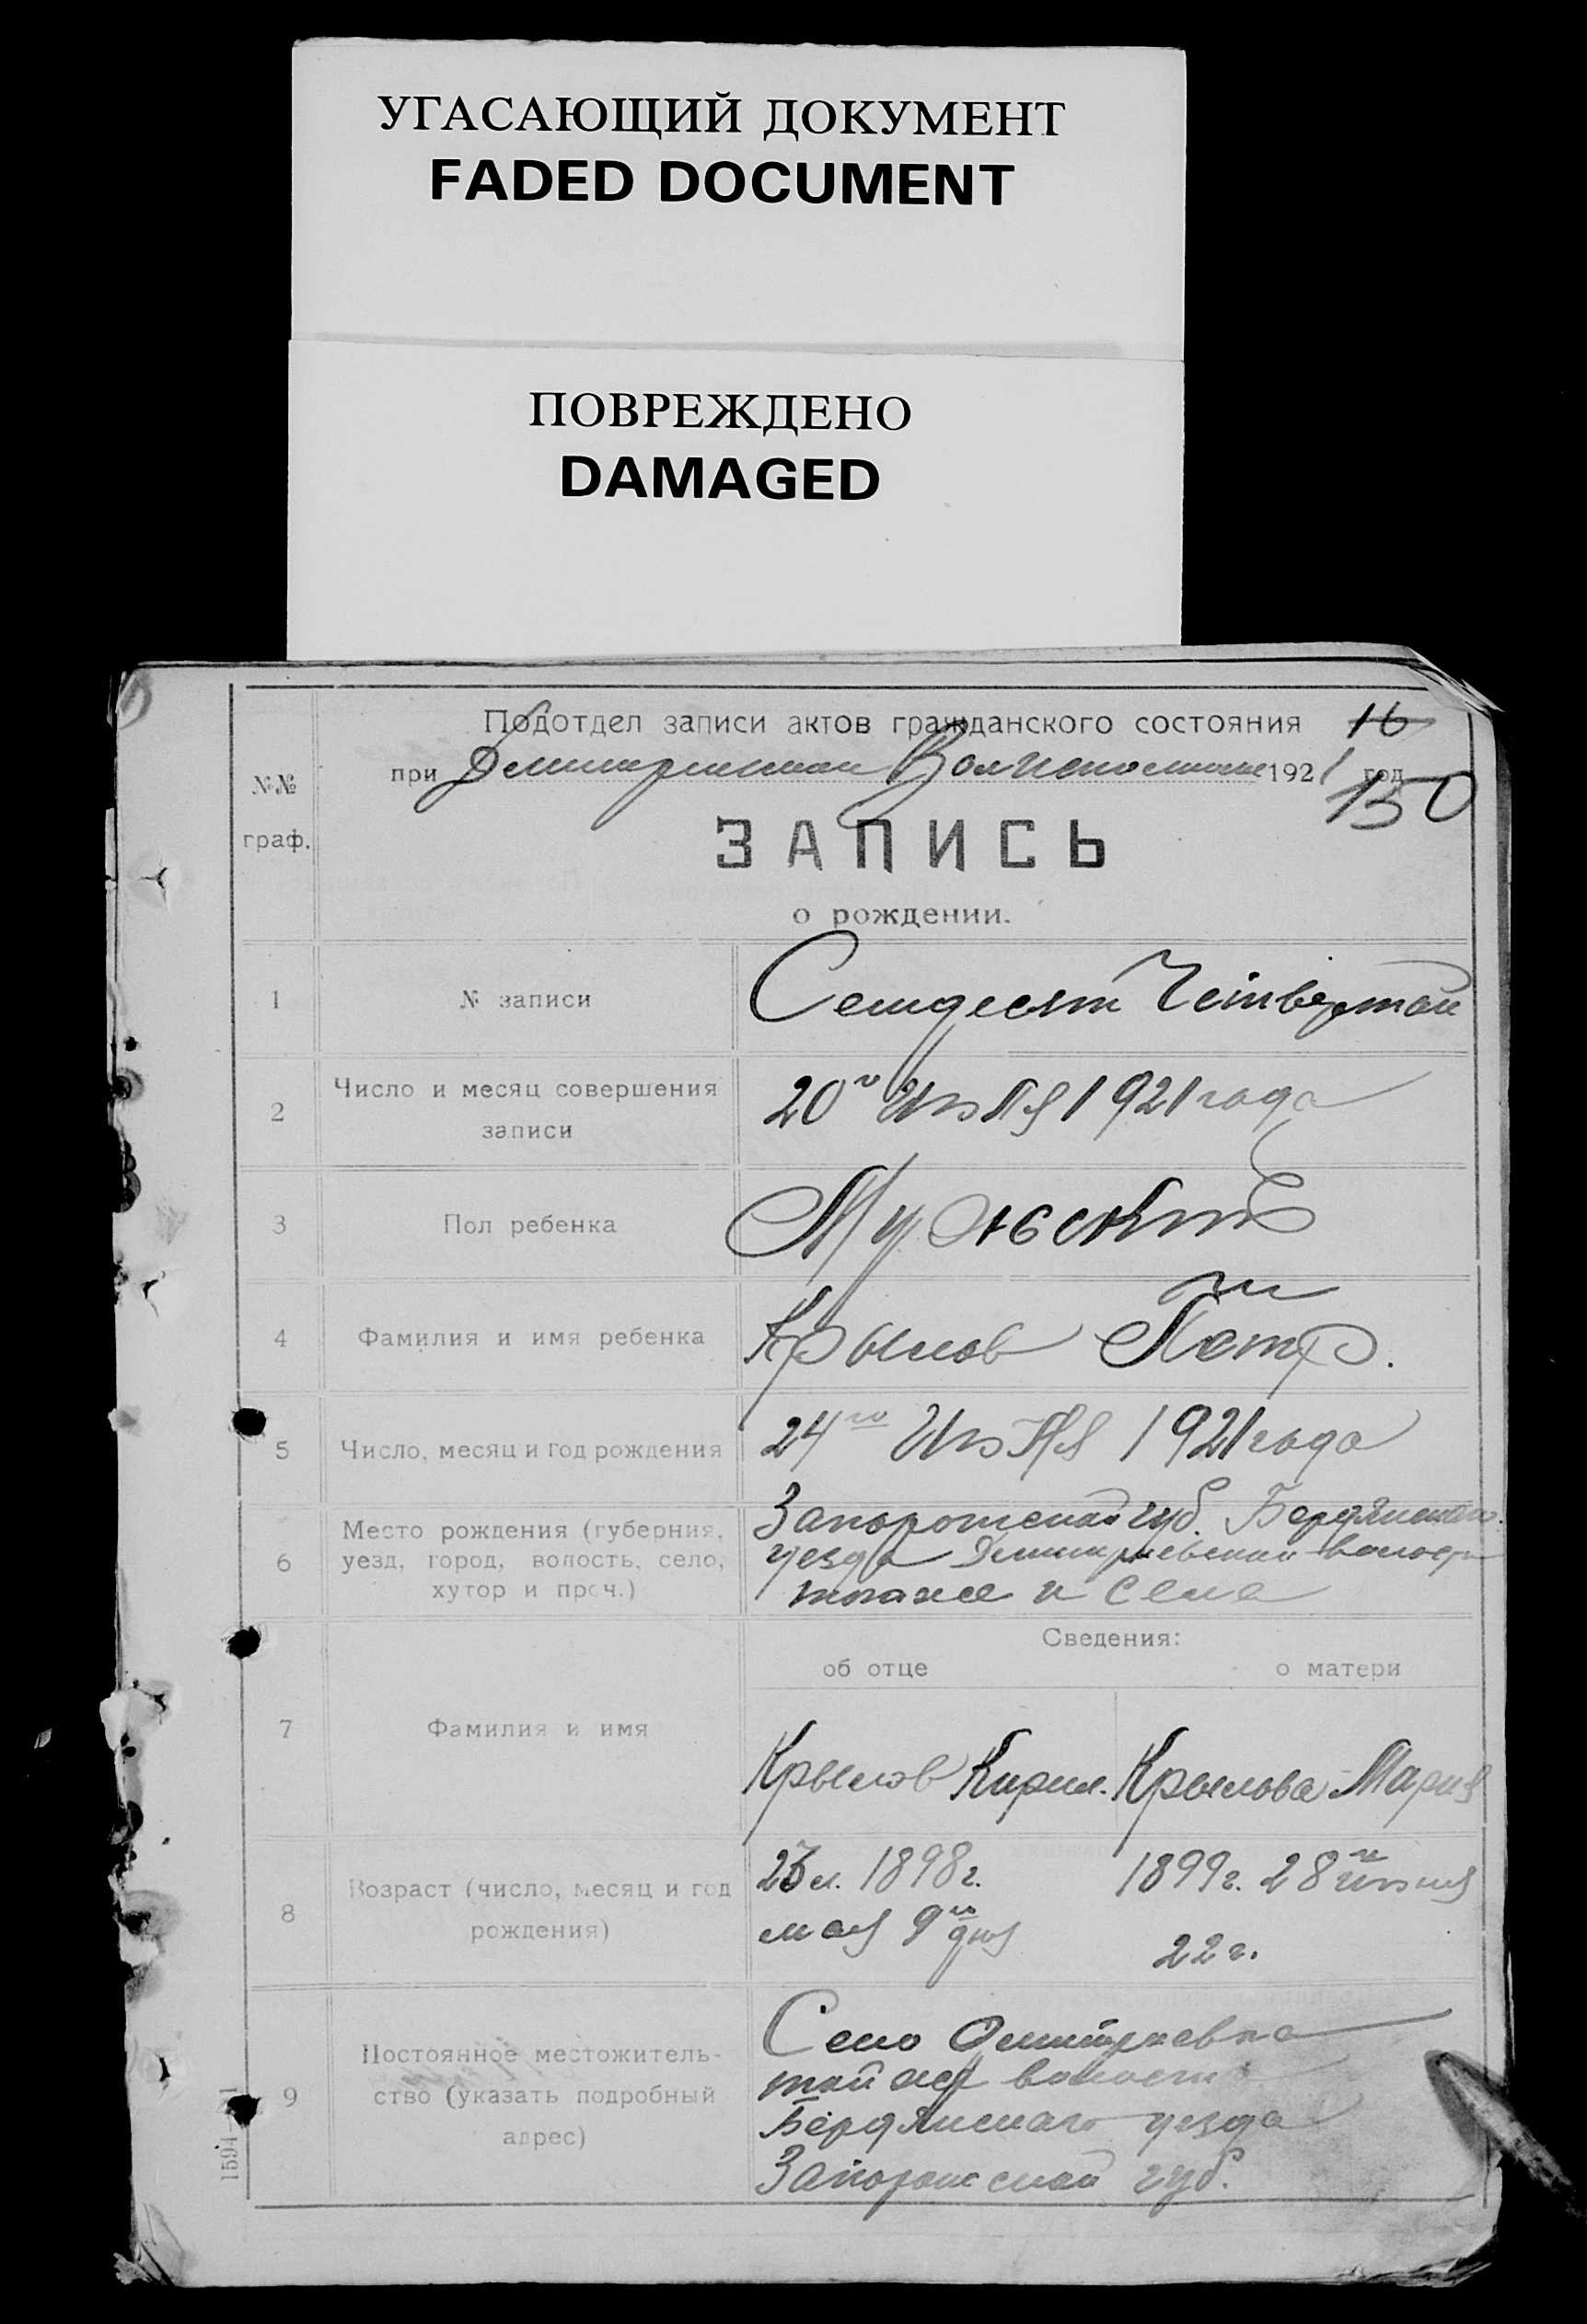 УГАСАЮЩИЙ ДОКУМЕНТ
FADED DOCUMENT
ПОВРЕЖДЕНО
DAMAGED
Подотдел записи актов гражданского состояния
16
при Дмитриевском Волисполкоме 1921 год
150
№№ граф.
ЗАПИСЬ
о рождении.
1 № записи Семдесят Четвертой
2 Число и месяц совершения записи 20го Июля 1921 года
3 Пол ребенка Мужской
4 Фамилия и имя ребенка Крылов Петр.
5 Число, месяц и год рождения 24го Июля 1921 года
6 Место рождения (губерния, уезд, город, волость, село, хутор и проч.)
Запорожской губ. Бердянского
уезда Дмитриевской волости
тогоже и села
Сведения:
об отце о матери
7 Фамилия и имя Крылов Кирил. Крылова Мария
8 Возраст (число, месяц и год рождения)
23 л. 1898 г. 1899 г. 28го июня
мая 9го дня 22 г.
9 Постоянное местожительство (указать подробный адрес)
Село Дмитриевка
тойже волости
Бердянского уезда
Запорожской губ.